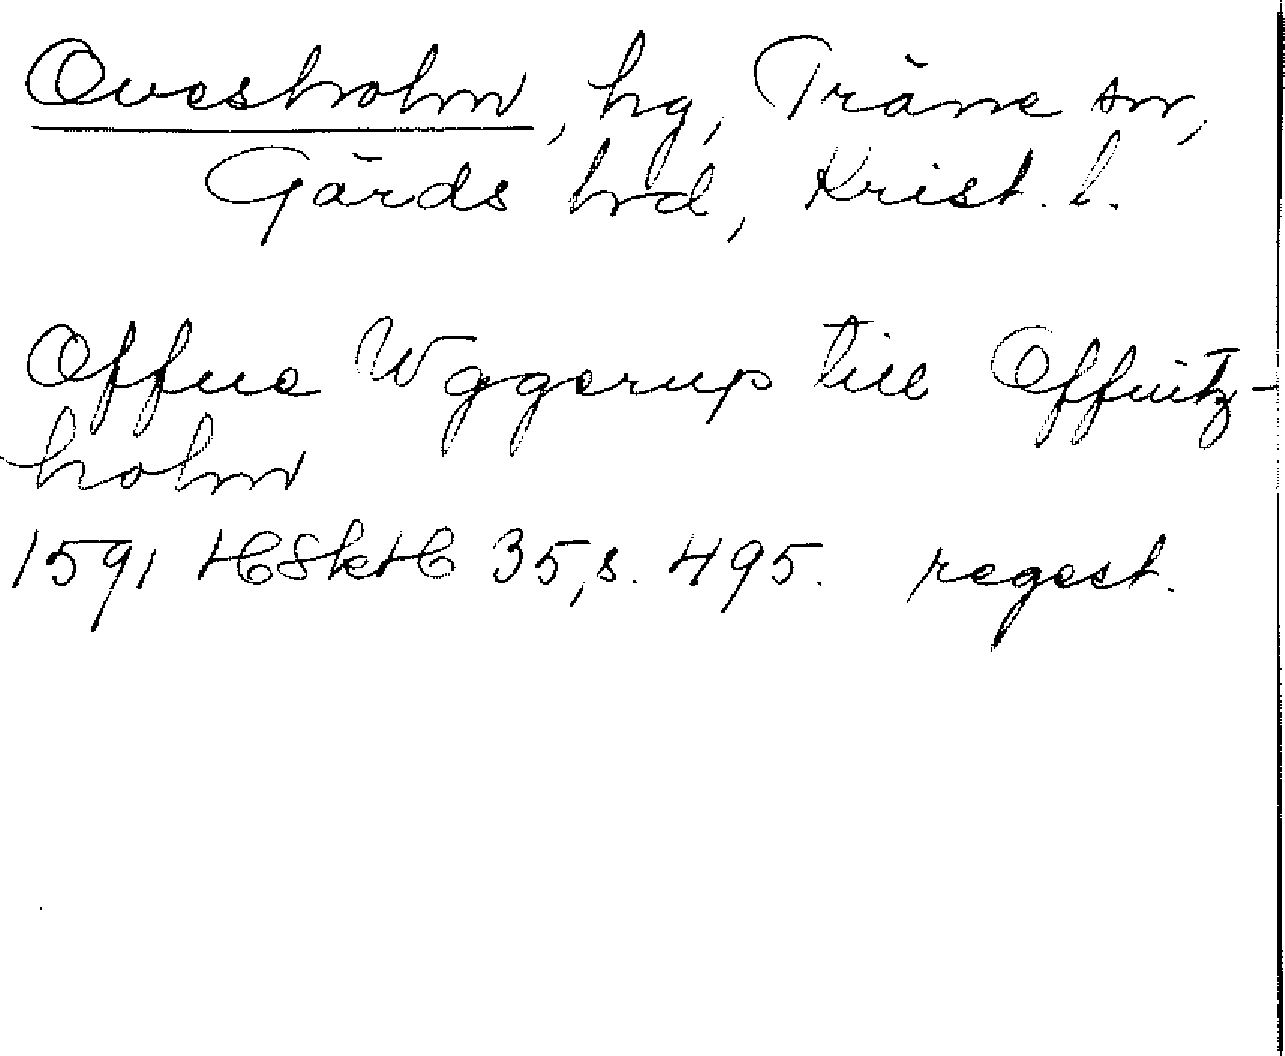 Ovesholm, hg, Träne sn,
Gärds hrd, Krist. l.
Offue Wggerup till Offuitz-
holm
1591 HSkH 35, s. 495. regest.